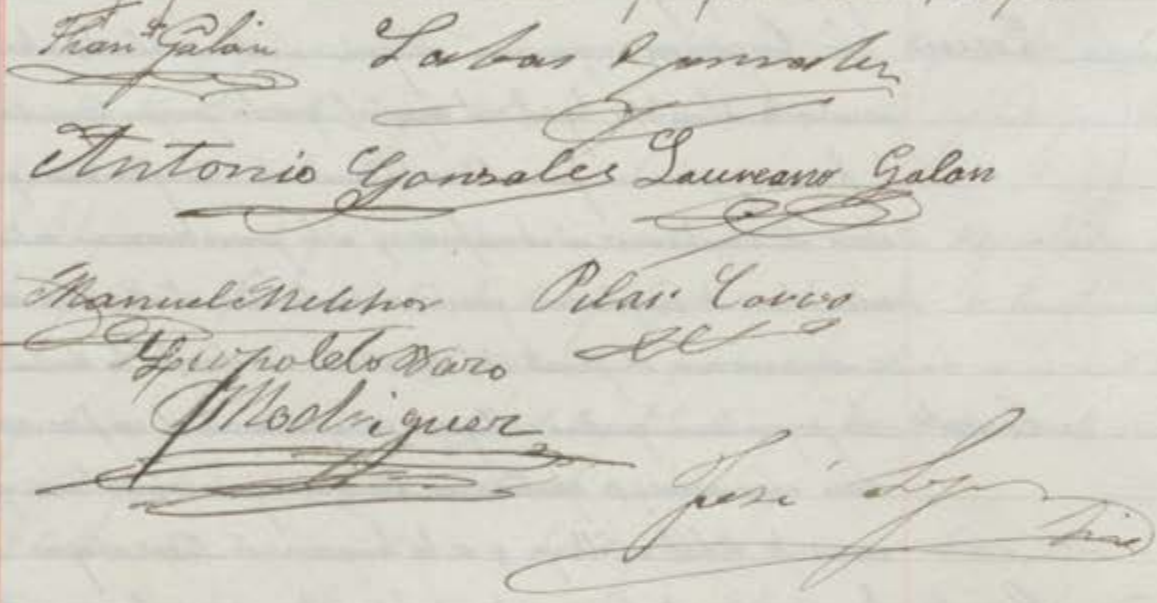 Franco Galán Labas Gonzalez
Antonio Gonzales Laureano Galan
Manuel Melchor Pilar Corvo
Leopoldo Haro
Modriguez
José